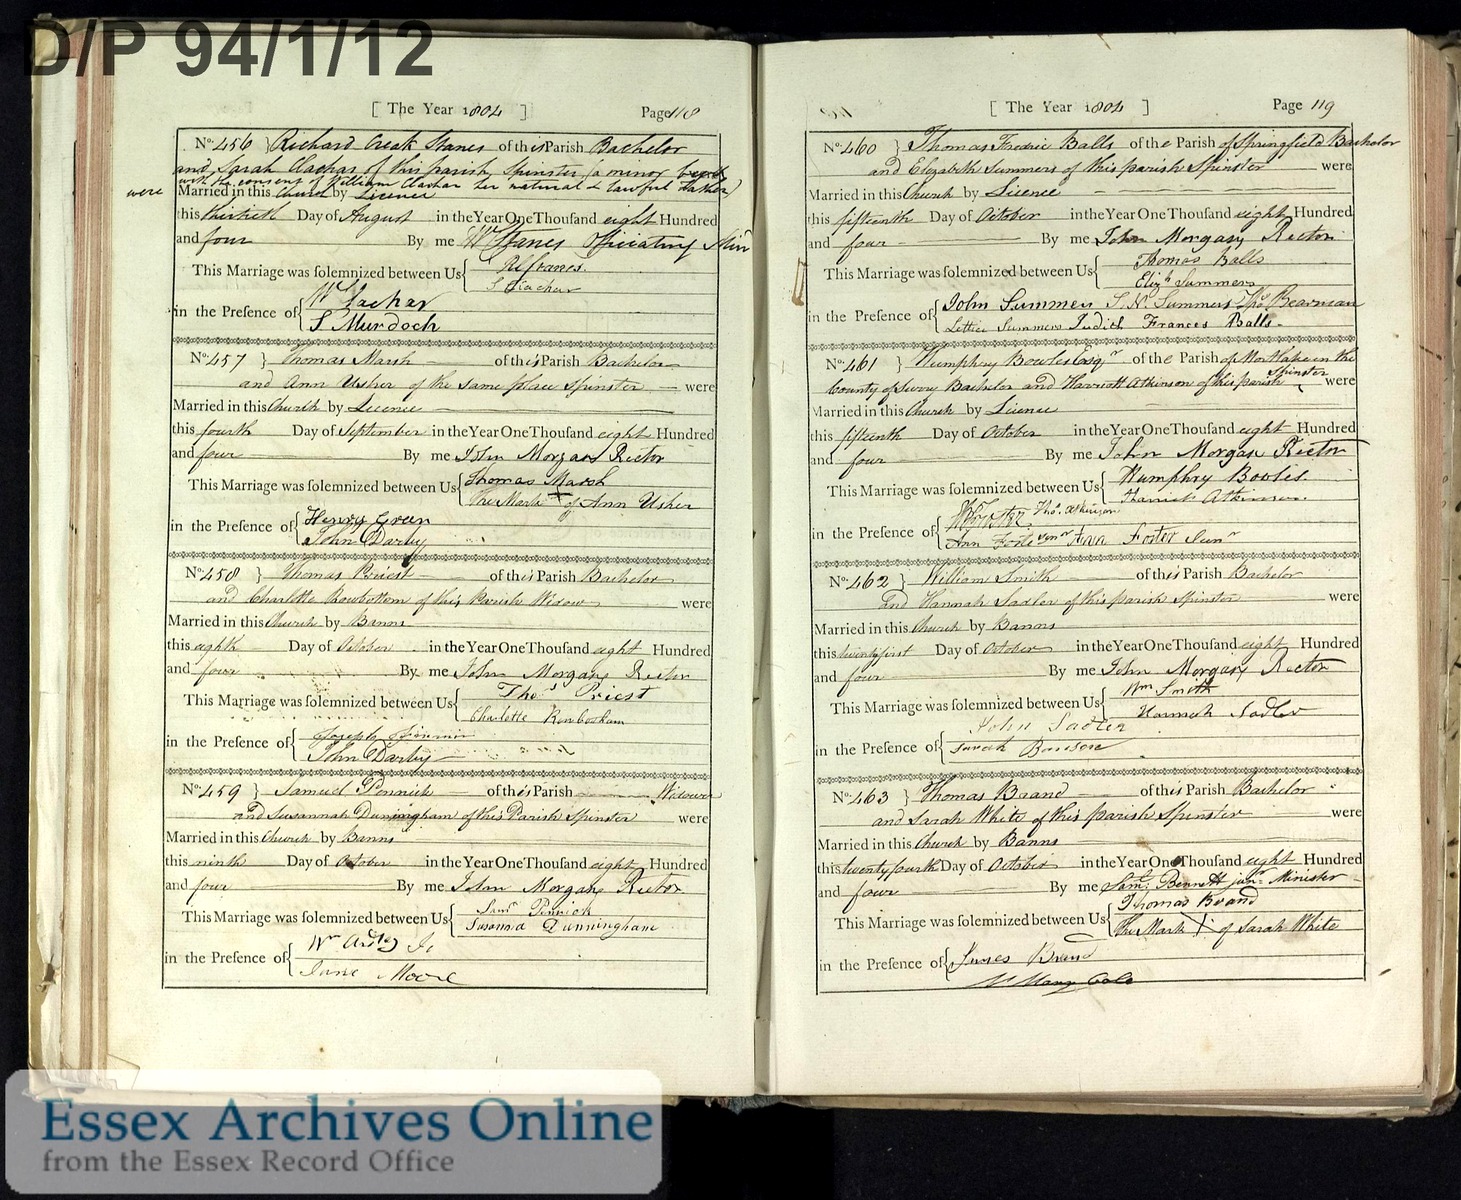 D/P 94/1/12
[ The Year 1804 ] Page 118
No. 456 } Richard Creak Stanes of this Parish Bachelor
and Sarah Clachar of this parish, Spinster, (a minor
with the consent of William Clachar her natural & lawful Father)
were Married in this Church by Licence
this thirtieth Day of August in the Year One Thousand eight Hundred
and four By me W Stanes Officiating Minr
This Marriage was solemnized between Us { R C Stanes.
S Clachar
in the Presence of { W Clachar
S Murdoch
No. 457 } Thomas Marsh of this Parish Bachelor
and Ann Usher of the same place Spinster were
Married in this Church by Licence
this fourth Day of September in the Year One Thousand eight Hundred
and four By me John Morgan Rector
This Marriage was solemnized between Us { Thomas Marsh
The Mark + of Ann Usher
in the Presence of { Henry Green
John Darby
No. 458 } Thomas Priest of this Parish Bachelor
and Charlotte Rowbottom of this Parish Widow were
Married in this Church by Banns
this eighth Day of October in the Year One Thousand eight Hundred
and four By me John Morgan Rector
This Marriage was solemnized between Us { Thos Priest
Charlotte
in the Presence of { Joseph
John Darby
No. 459 } Samuel Pennick of this Parish Widower
and Susannah Dunningham of this Parish Spinster were
Married in this Church by Banns
this ninth Day of October in the Year One Thousand eight Hundred
and four By me John Morgan Rector
This Marriage was solemnized between Us { Saml Pennick
Susanna Dunningham
in the Presence of { Wm
Jane Moore
[ The Year 1804 ] Page 119
No. 460 } Thomas Fredric Balls of the Parish of Springfield Bachelor
and Elizabeth Summers of this parish Spinster were
Married in this Church by Licence
this fifteenth Day of October in the Year One Thousand eight Hundred
and four By me John Morgan Rector
This Marriage was solemnized between Us { Thomas Balls
Elizh Summers
in the Presence of { John Summers S. N. Summers Thos Bearman
Lettice Summers Judith Frances Balls.
No. 461 } Humphry Bowles Esqr of the Parish of Mortlake in the
County of Surry Bachelor and Harriott Atkinson of this parish Spinster were
Married in this Church by Licence
this fifteenth Day of October in the Year One Thousand eight Hundred
and four By me John Morgan Rector
This Marriage was solemnized between Us { Humphry Bowles.
Harriott Atkinson.
in the Presence of { W Foster. Thos. Atkinson
Ann Foster Senr Ann Foster Junr
No. 462 } William Smith of this Parish Bachelor
and Hannah Sadler of this parish Spinster were
Married in this Church by Banns
this twenty first Day of October in the Year One Thousand eight Hundred
and four By me John Morgan Rector
This Marriage was solemnized between Us { Wm Smith
Hannah Sadler
in the Presence of { John Sadler
Sarah
No. 463 } Thomas Brand of this Parish Bachelor
and Sarah White of this parish Spinster were
Married in this Church by Banns
this twenty fourth Day of October in the Year One Thousand eight Hundred
and four By me Saml Bennett junr Minister
This Marriage was solemnized between Us { Thomas Brand
The Mark X of Sarah White
in the Presence of { James Brand
Mary Cole
Essex Archives Online
from the Essex Record Office